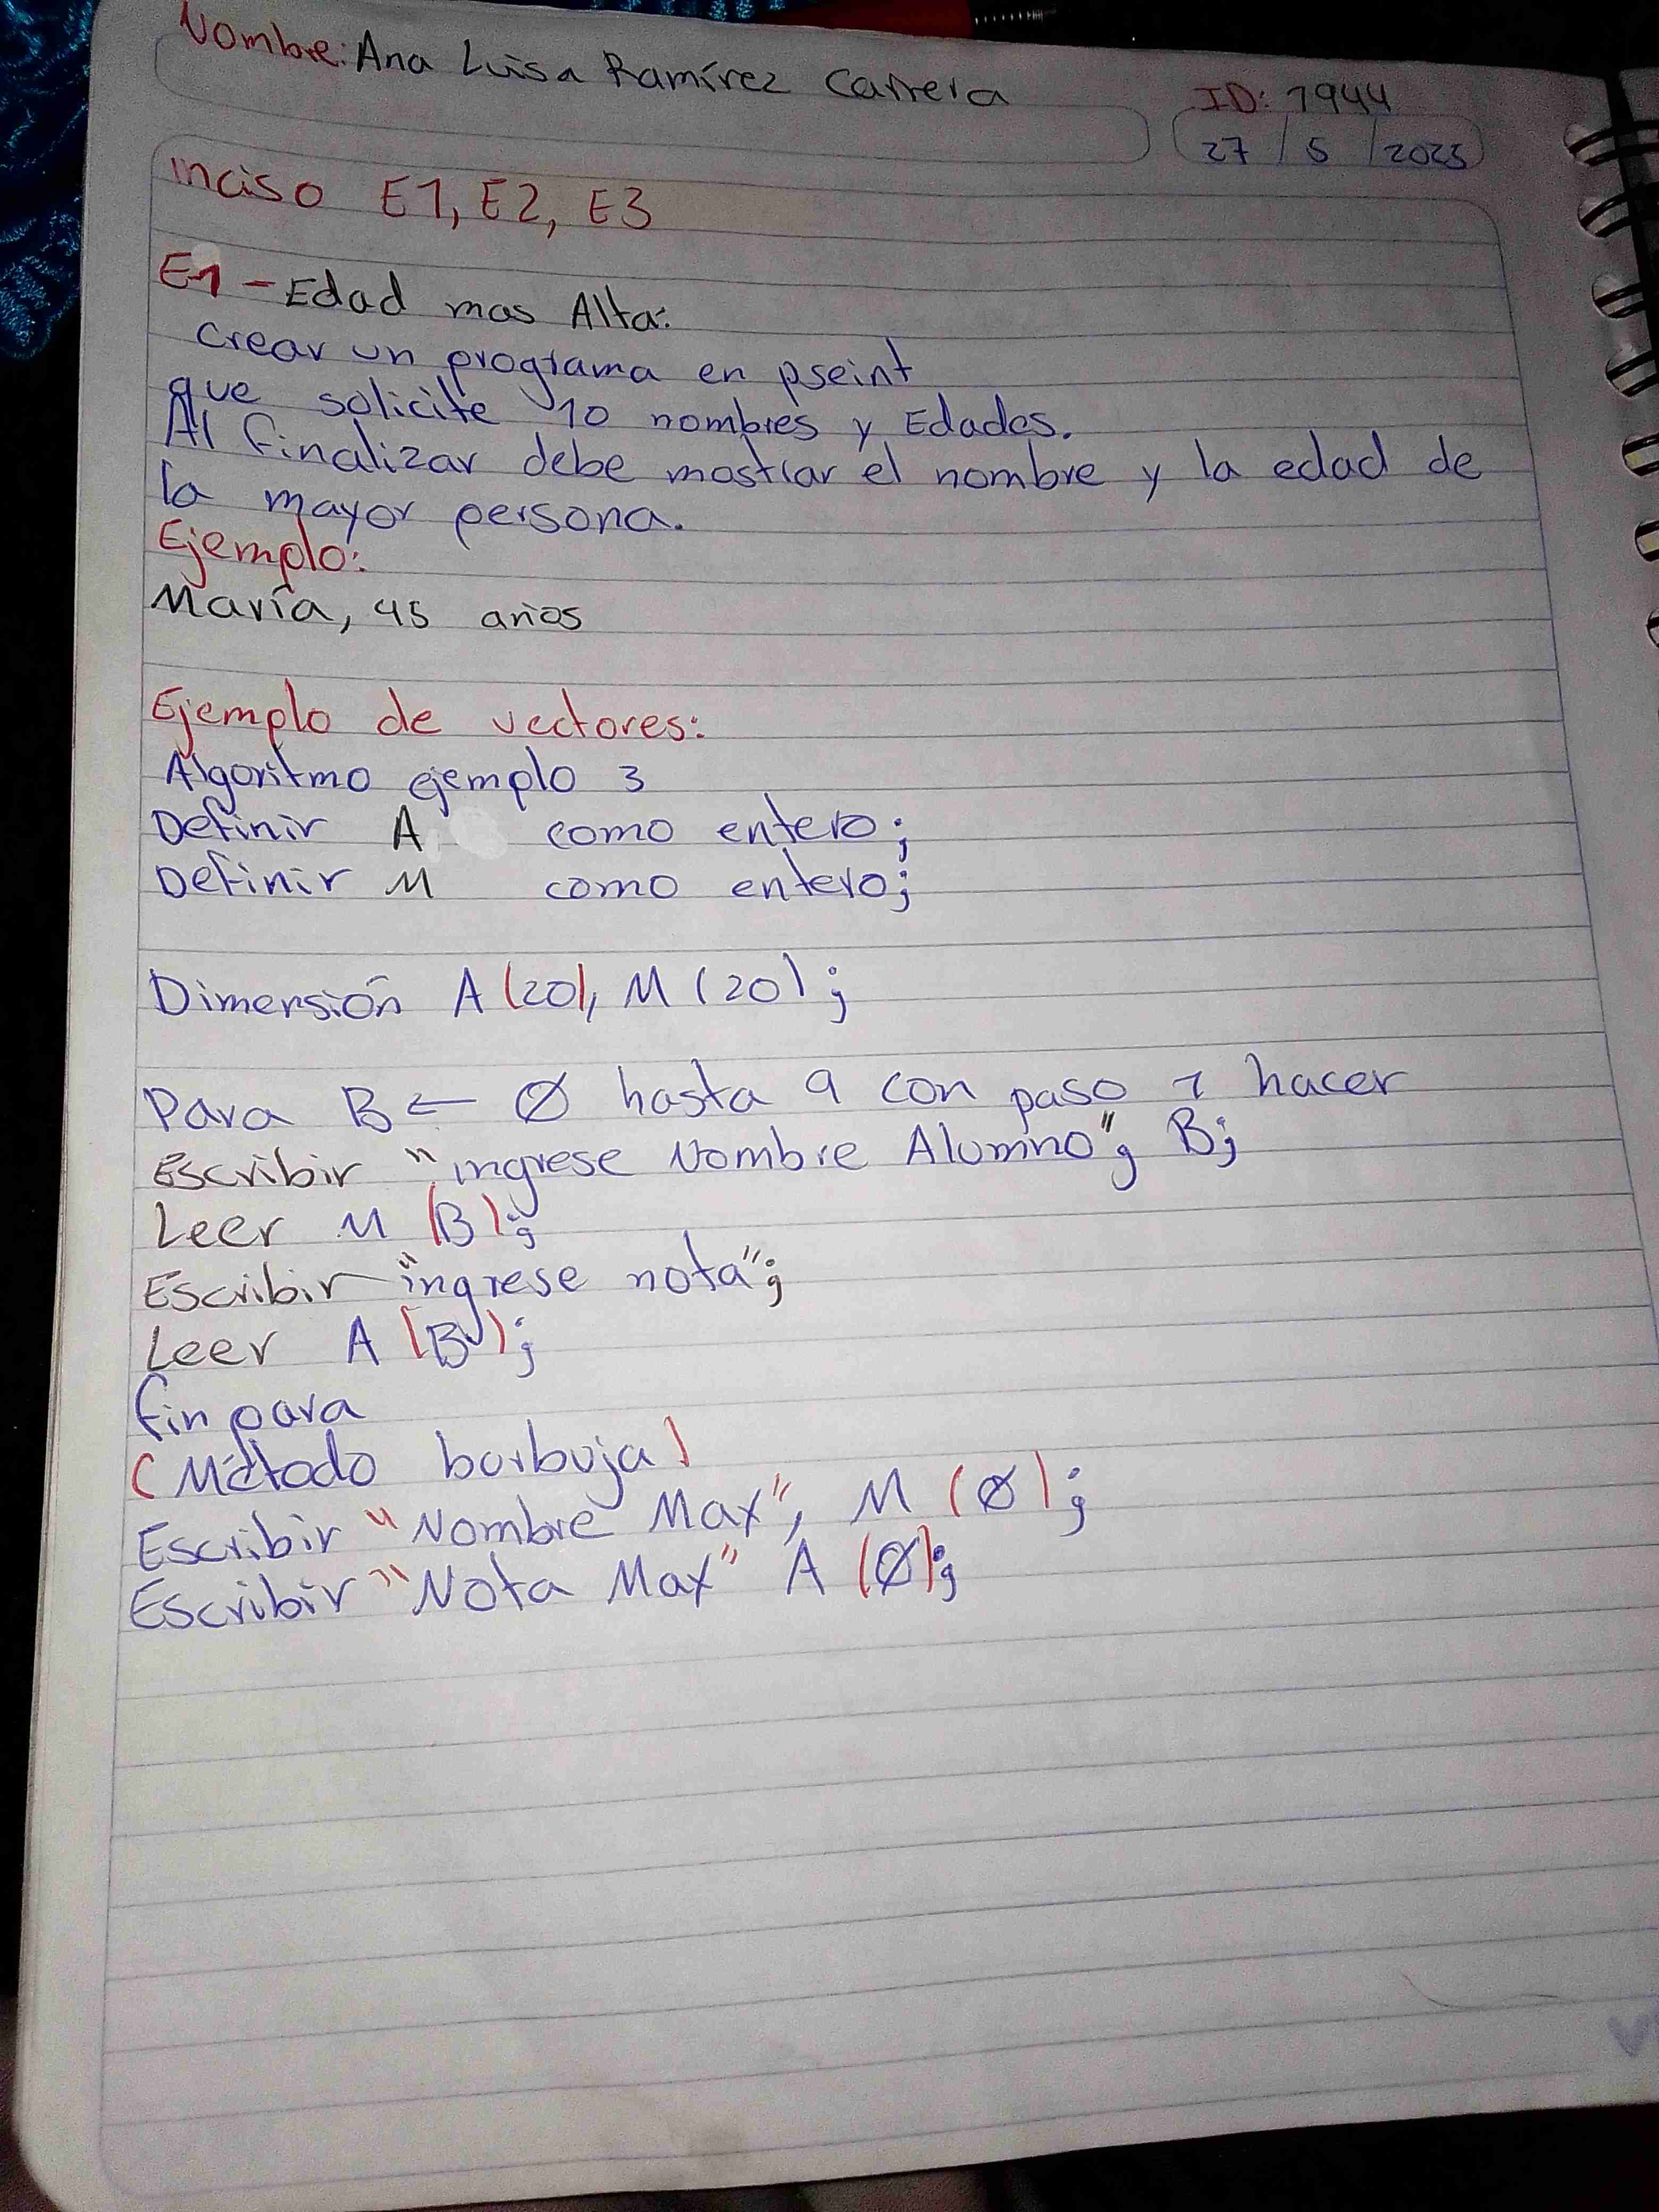 Nombre: Ana Luisa Ramírez Carrera
ID: 1944
27 / 5 / 2025
inciso E1, E2, E3
E1 - Edad mas Alta:
Crear un programa en pseint
que solicite 10 nombres y Edades.
Al finalizar debe mostrar el nombre y la edad de
la mayor persona.
Ejemplo:
María, 45 años
Ejemplo de vectores:
Algoritmo ejemplo 3
Definir A como entero;
Definir M como entero;
Dimensión A (20), M (20);
Para B ← Ø hasta 9 con paso 1 hacer
Escribir "ingrese Nombre Alumno"; B;
Leer M (B);
Escribir "ingrese nota";
Leer A (B);
fin para
(Método borbuja)
Escribir "Nombre Max", M (Ø);
Escribir "Nota Max" A (Ø);